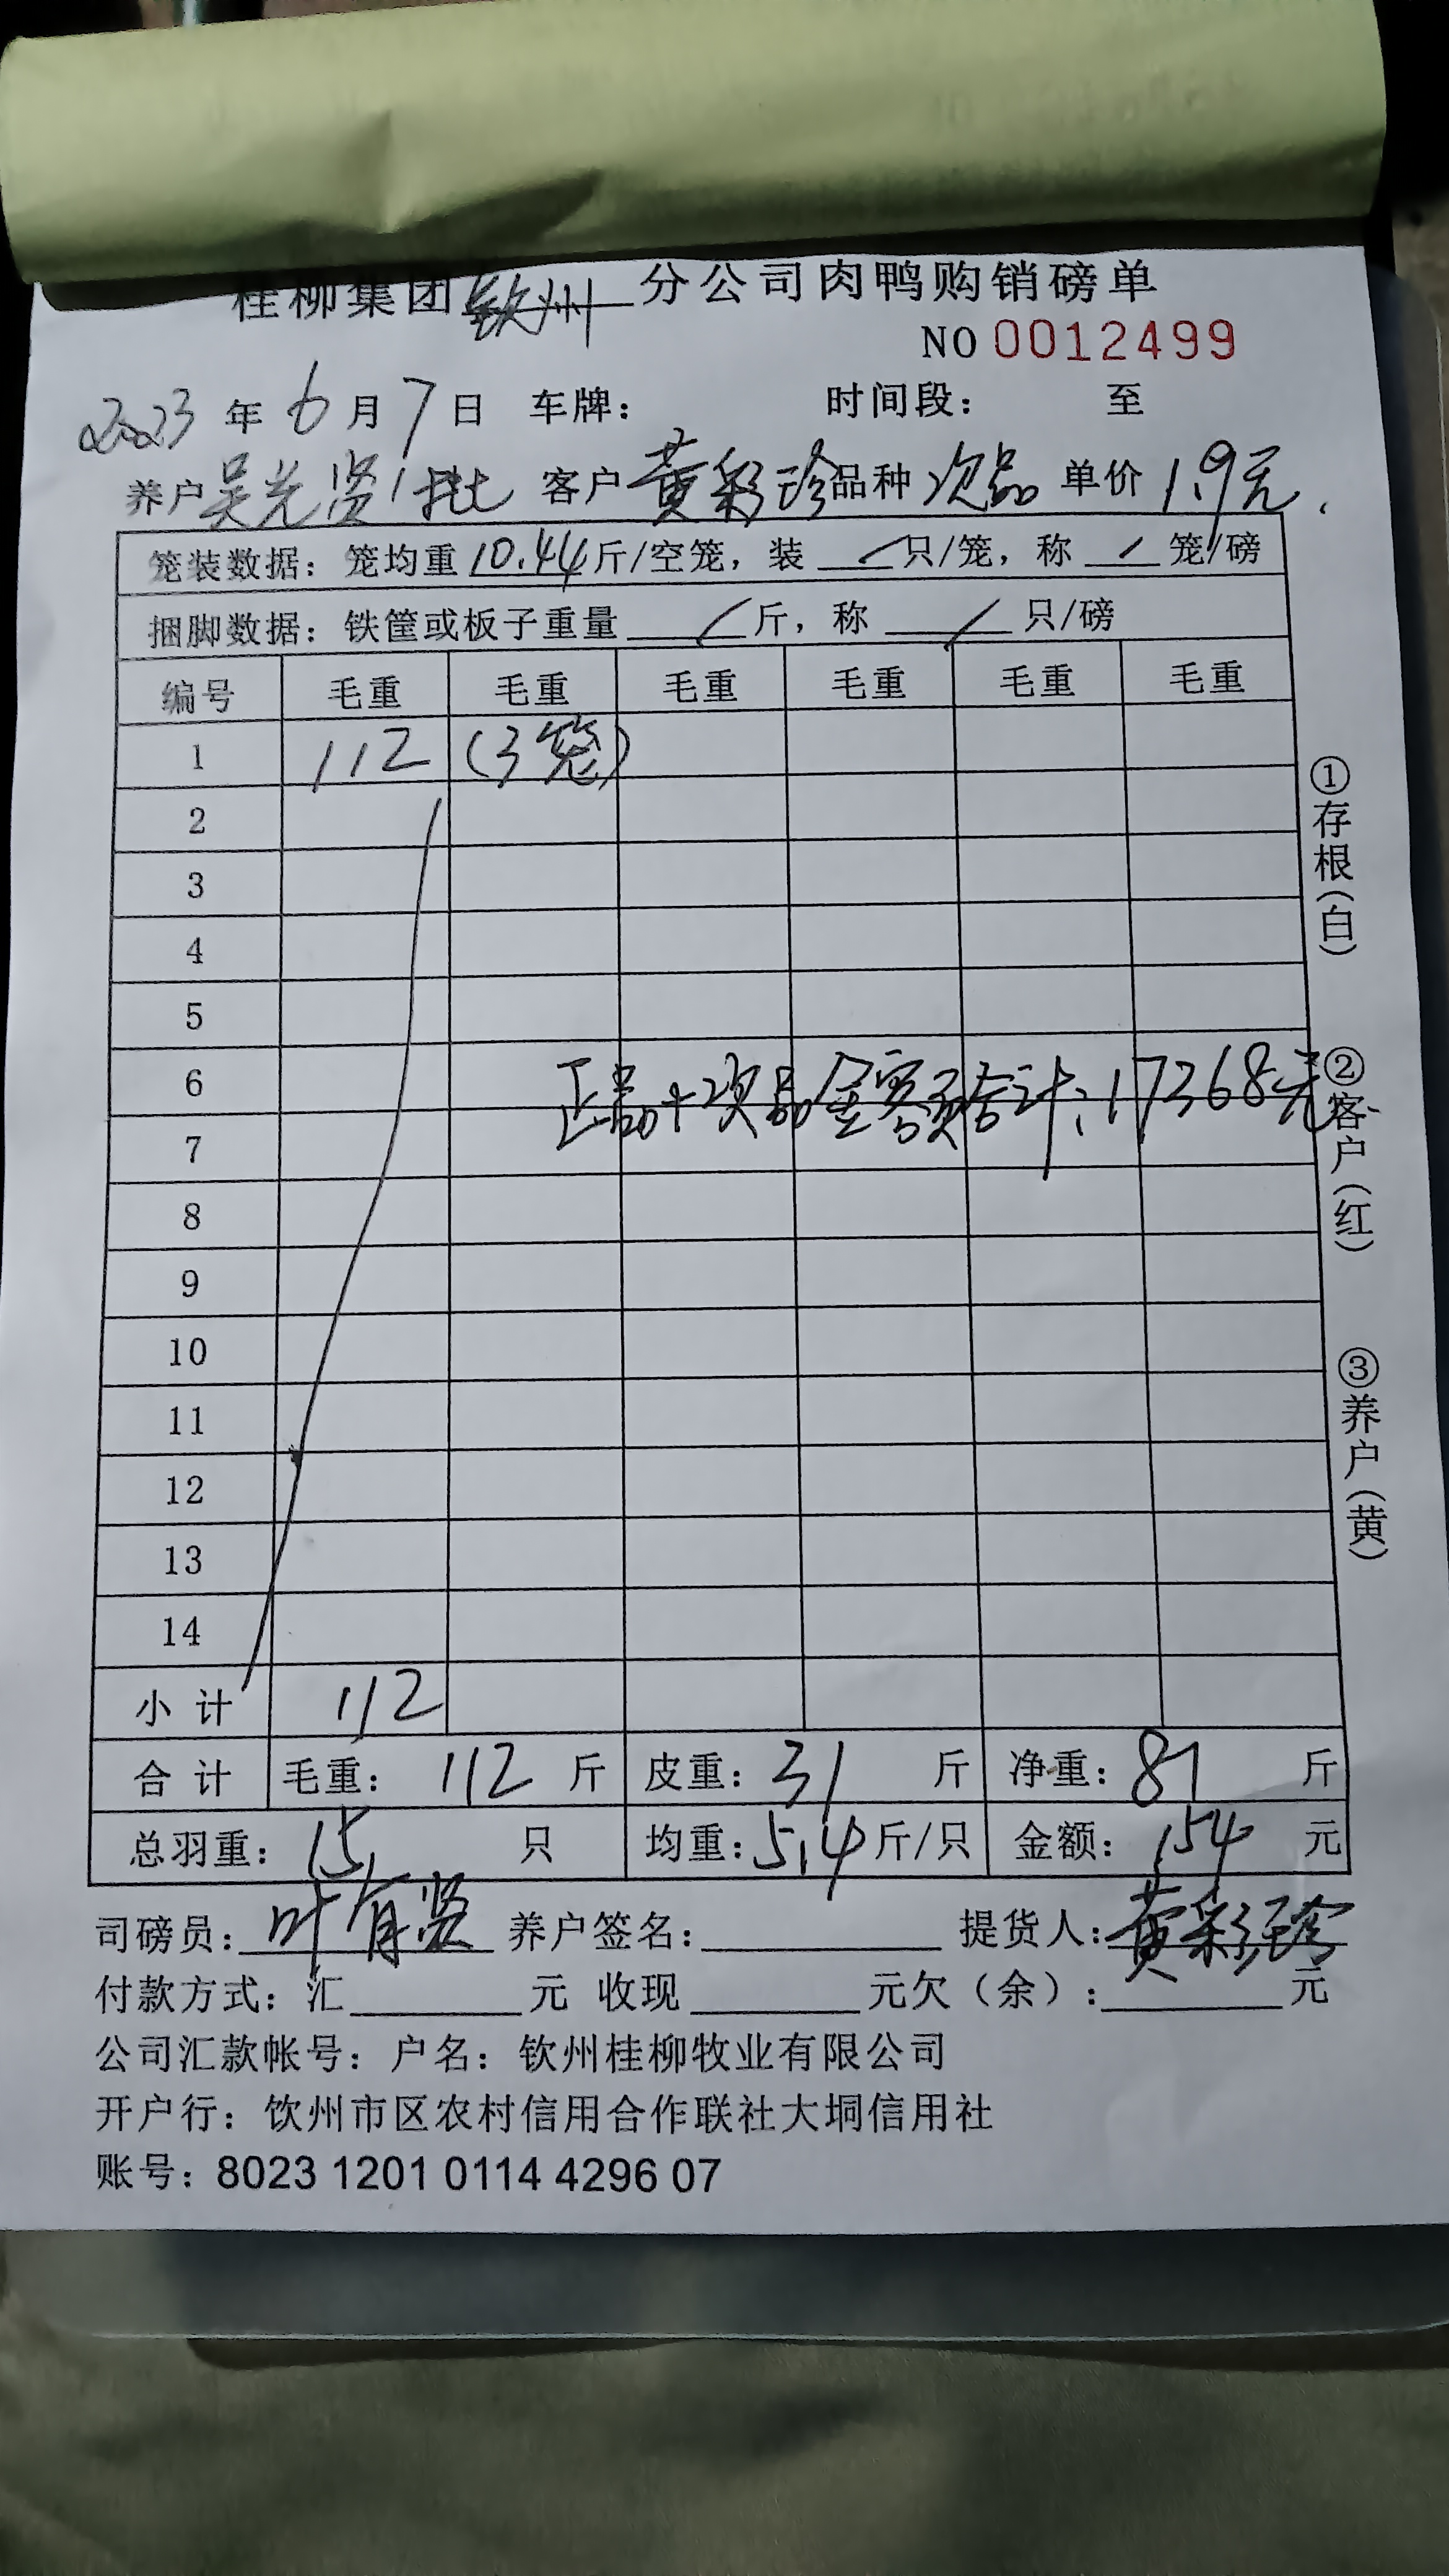 桂柳集团钦州分公司肉鸭购销磅单
NO 0012499
2023年6月7日 车牌： 时间段： 至
养户吴光贤1批 客户黄彩珍品种次品 单价1.9元.
笼装数据：笼均重10.44斤/空笼，装/只/笼，称/笼/磅
捆脚数据：铁筐或板子重量/斤，称/只/磅
编号 毛重 毛重 毛重 毛重 毛重 毛重
1 112 (3笼)
2
3
4
5
6
正品+次品金额合计:17368元
7
8
9
10
11
12
13
14
小计 112
合计 毛重：112斤 皮重：31斤 净重：81斤
总羽重：15只 均重：5.4斤/只 金额：154元
司磅员：叶有贤 养户签名： 提货人：黄彩珍
付款方式：汇 元 收现 元欠（余）： 元
公司汇款帐号：户名：钦州桂柳牧业有限公司
开户行：钦州市区农村信用合作联社大垌信用社
账号：8023 1201 0114 4296 07
①存根（白）
②客户（红）
③养户（黄）